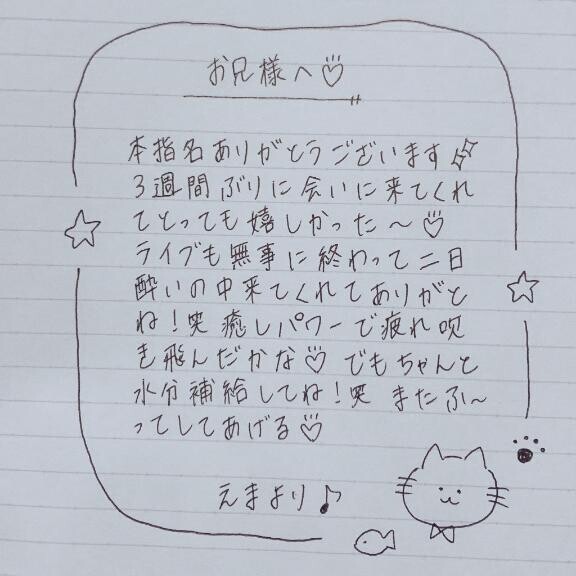 お兄様へ♡
本指名ありがとうございます✨
3週間ぶりに会いに来てくれ
てとっても嬉しかった〜♡
ライブも無事に終わって二日
酔いの中来てくれてありがと
ね!笑 癒しパワーで疲れ吹
き飛んだかな♡ でもちゃんと
水分補給してね!笑 またふ〜
ってしてあげる♡
えまより♪